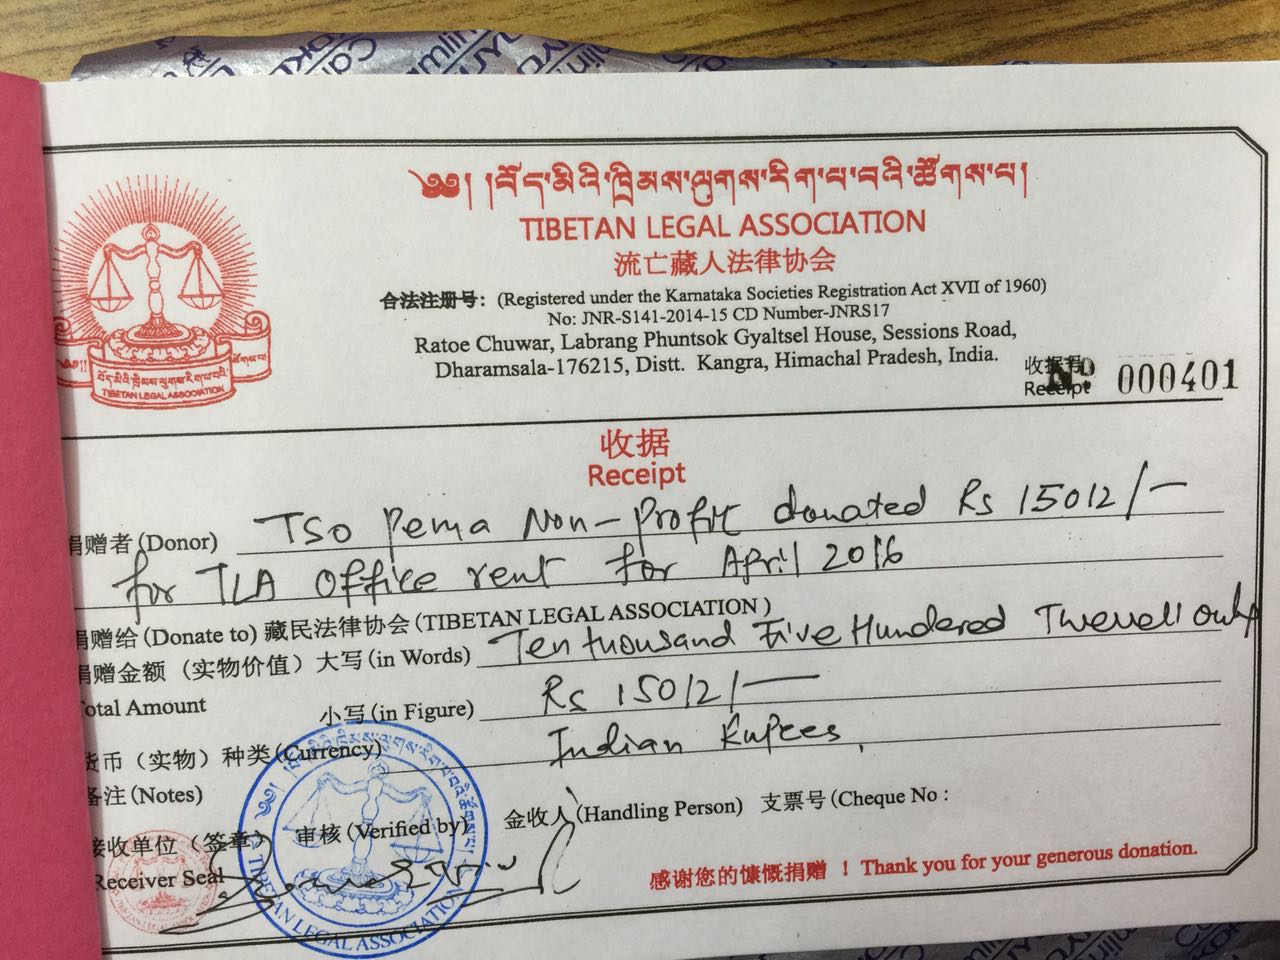 ༄༅། །བོད་མིའི་ཁྲིམས་ལུགས་རིག་པ་བའི་ཚོགས་པ།
TIBETAN LEGAL ASSOCIATION
流亡藏人法律协会
合法注册号: (Registered under the Karnataka Societies Registration Act XVII of 1960)
No: JNR-S141-2014-15 CD Number-JNRS17
Ratoe Chuwar, Labrang Phuntsok Gyaltsel House, Sessions Road,
Dharamsala-176215, Distt. Kangra, Himachal Pradesh, India.
收据号 Receipt No 000401
TIBETAN LEGAL ASSOCIATION
收据
Receipt
捐赠者 (Donor) TSO Pema Non-Profit donated Rs 15012/-
for TLA Office rent for April 2016
捐赠给 (Donate to) 藏民法律协会 (TIBETAN LEGAL ASSOCIATION)
捐赠金额 (实物价值) 大写 (in Words) Ten thousand Five Hundered Twevell only
Total Amount
小写 (in Figure) Rs 15012/-
货币 (实物) 种类 (Currency) Indian Rupees,
备注 (Notes)
接收单位 (签章) 审核 (Verified by) 金收人 (Handling Person) 支票号 (Cheque No :
Receiver Seal
TIBETAN LEGAL ASSOCIATION
感谢您的慷慨捐赠 ! Thank you for your generous donation.